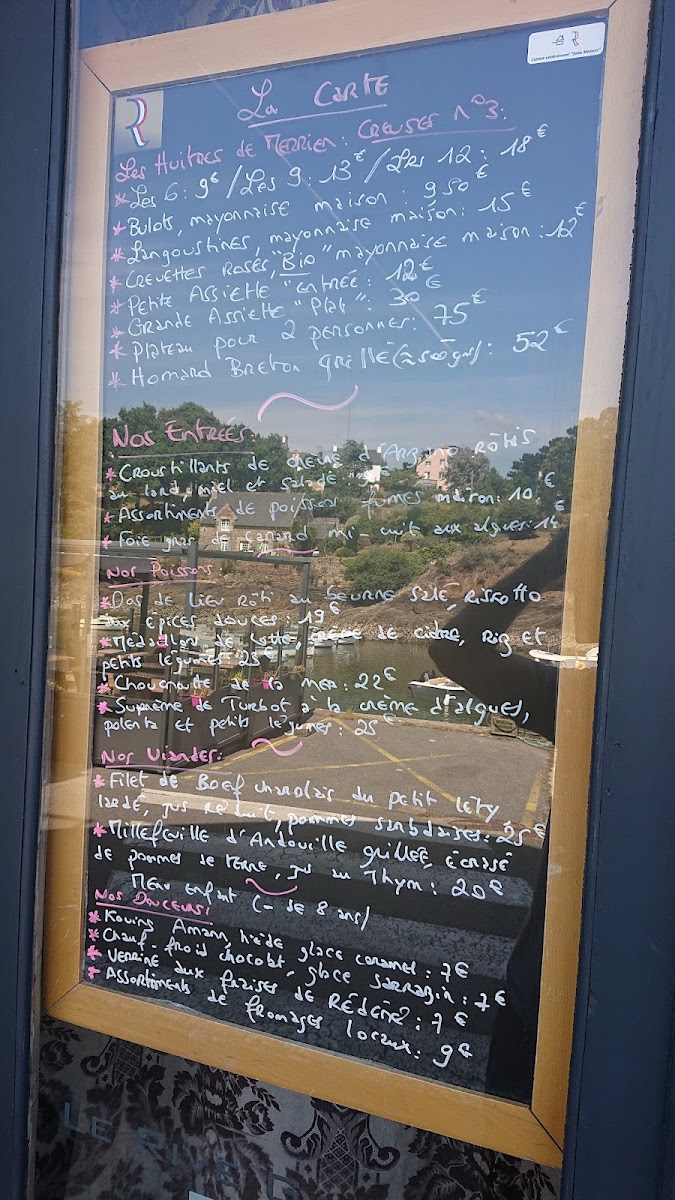 R
Cuisine entièrement "Faite Maison"
La Carte
Les Huitres de Merrien: Creuses n°3:
* Les 6: 9€ / Les 9: 13€ / Les 12: 18€
* Bulots, mayonnaise maison: 9.50€
* Langoustines, mayonnaise maison: 15€
* Crevettes Roses, "Bio" mayonnaise maison: 12€
* Petite Assiette "Entrée": 12€
* Grande Assiette "Plat": 30€
* Plateau pour 2 personnes: 75€
* Homard Breton grillé (≈500gr): 52€
Nos Entrées
* Croustillants de chèvre d'Arzano Rôtis
au lard, miel et salade
* Assortiments de poissons fumés maison: 10€
* Foie gras de canard mi-cuit aux algues: 14€
Nos Poissons
* Dos de lieu rôti au beurre salé, risotto
aux épices douces: 19€
* Médaillon de lotte, crème de cidre, Riz et
petits légumes: 25€
* Choucroute de la mer: 22€
* Suprême de Turbot à la crème d'algues,
polenta et petits légumes: 25€
Nos Viandes:
* Filet de Boeuf charolais du petit
lardé, jus réduit, pommes sarladaises: 25€
* Millefeuille d'Andouille grillée, écrasé
de pommes de terre, jus au Thym: 20€
Menu enfant (- de 8 ans)
Nos Douceurs:
* Kouing Amann tiède glace caramel: 7€
* Chaud-froid chocolat, glace sarrazin: 7€
* Verrine aux fraises de Rédéné: 7€
* Assortiments de fromages locaux: 9€
LE RIVE G